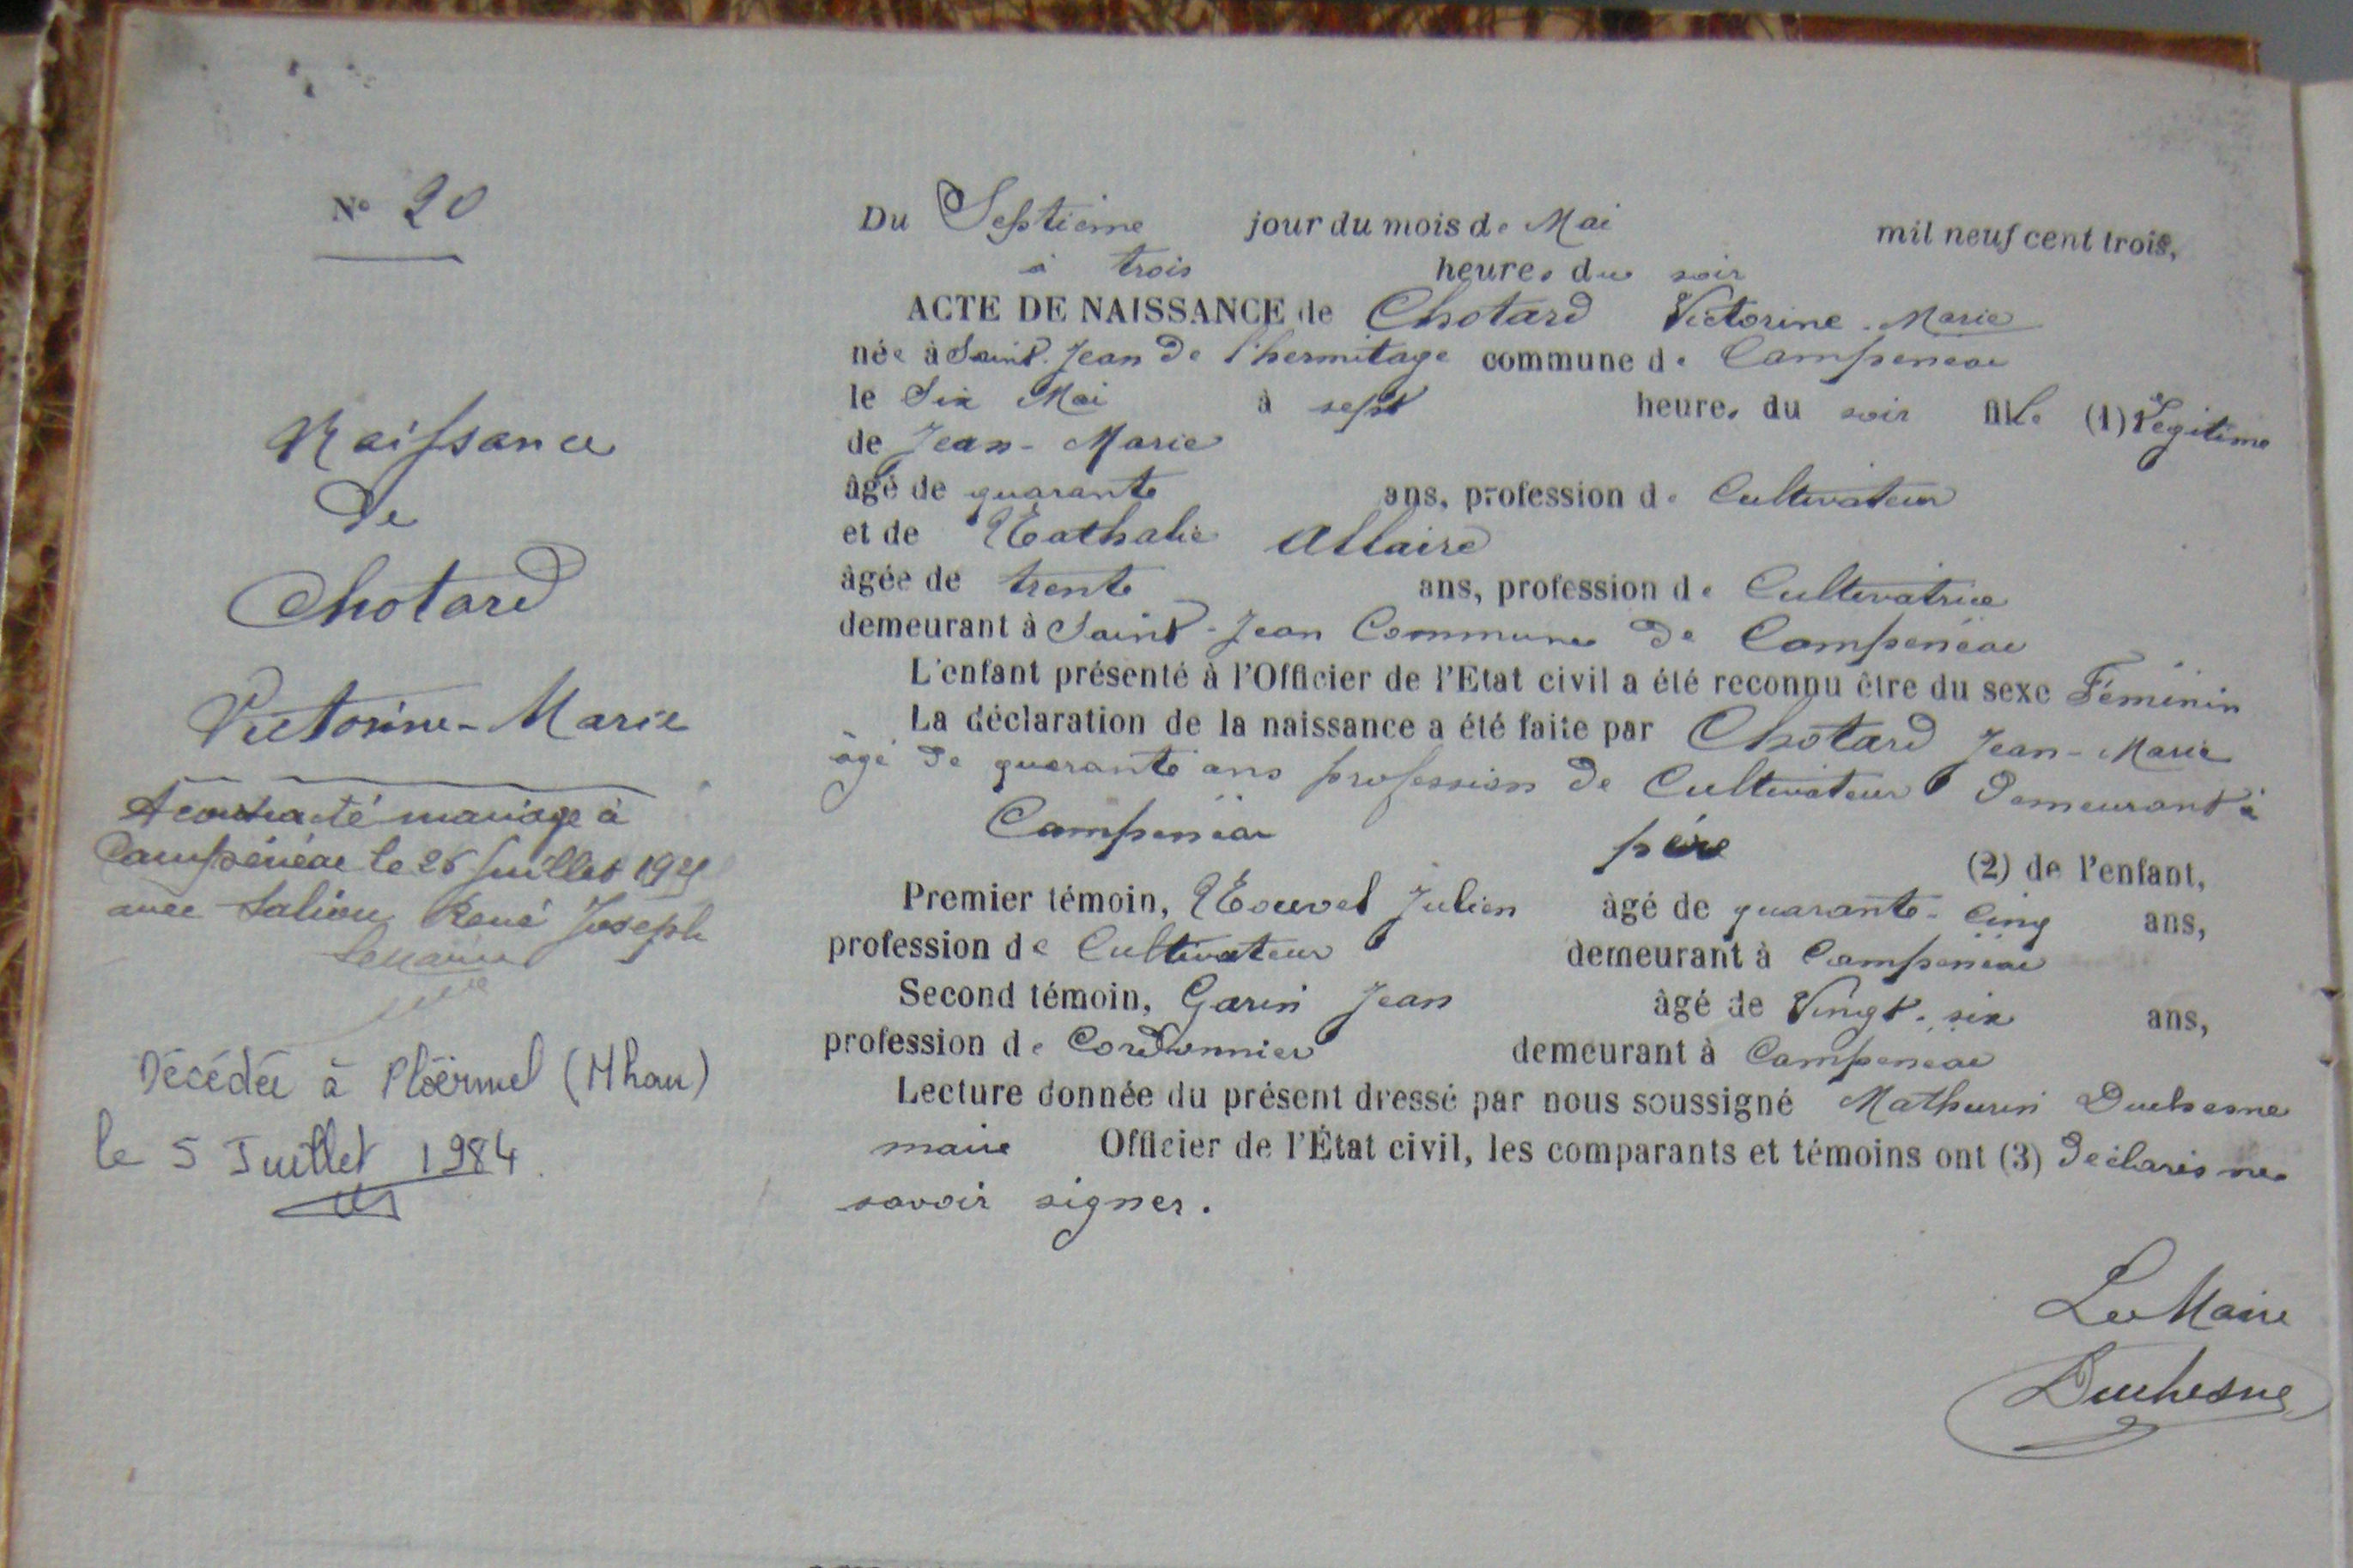 N° 20
Naissance
de
Chotard
Victorine-Marie
A contracté mariage à
Campénéac le 26 Juillet
avec Saliou René Joseph
Le Maire
Décédée à Ploërmel (Mhan)
le 5 Juillet 1984.
Du Septième jour du mois de Mai mil neuf cent trois,
à trois heures du soir
ACTE DE NAISSANCE de Chotard Victorine-Marie
née à Saint-Jean de l'hermitage commune de Campénéac
le Six Mai à sept heures du soir fille (1) légitime
de Jean-Marie
âgé de quarante ans, profession de Cultivateur
et de Nathalie Allaire
âgée de trente ans, profession de Cultivatrice
demeurant à Saint-Jean Commune de Campénéac
L'enfant présenté à l'Officier de l'Etat civil a été reconnu être du sexe Féminin
La déclaration de la naissance a été faite par Chotard Jean-Marie
âgé de quarante ans profession de Cultivateur demeurant à
Campénéac père (2) de l'enfant,
Premier témoin, Nouvel Julien âgé de quarante-cinq ans,
profession de Cultivateur demeurant à Campénéac
Second témoin, Garin Jean âgé de Vingt-six ans,
profession de Cordonnier demeurant à Campénéac
Lecture donnée du présent dressé par nous soussigné Mathurin Duchesne
maire Officier de l'État civil, les comparants et témoins ont (3) déclarés ne
savoir signer.
Le Maire
Duchesne